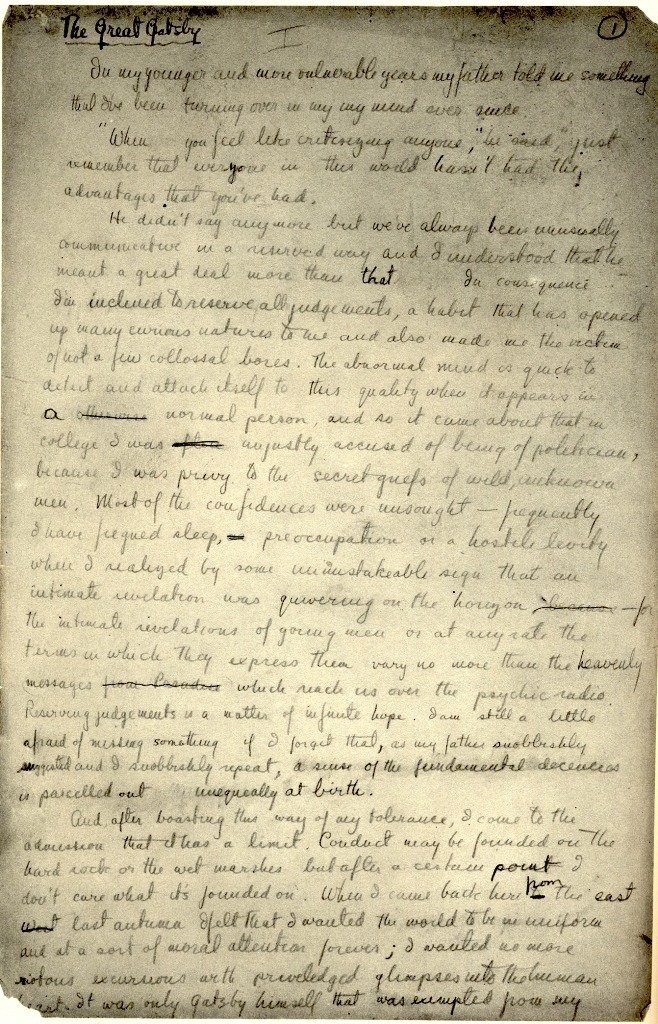 The Great Gatsby
I
1
In my younger and more vulnerable years my father told me something
that I've been turning over in my my mind ever since.
"When you feel like critisizing anyone," he said, "just
remember that everyone in this world hasn't had the
advantages that you've had.
He didn't say any more but we've always been unusually
communicative in a reserved way and I understood that he
meant a great deal more than that In consequence
I'm inclined to reserve all judgements, a habit that has opened
up many curious natures to me and also made me the victim
of not a few collossal bores. The abnormal mind is quick to
detect and attach itself to this quality when it appears in
a otherwise normal person, and so it came about that in
college I was unjustly accused of being of politician,
because I was privy to the secret griefs of wild, unknown
men. Most of the confidences were unsought — frequently
I have fiegned sleep, preoccupation or a hostile levity
when I realized by some unmistakeable sign that an
intimate revelation was quivering on the horizon — for
the intimate revelations of young men or at any rate the
terms in which they express them vary no more than the heavenly
messages from which reach us over the psychic radio.
Reserving judgements is a matter of infinite hope. I am still a little
afraid of missing something if I forget that, as my father snobbishly
suggested and I snobbishly repeat, a sense of the fundamental decencies
is parcelled out unequally at birth.
And, after boasting this way of my tolerance, I come to the
admission that it has a limit. Conduct may be founded on the
hard rock or the wet marshes but after a certain point I
don't care what it's founded on. When I came back here from the east
last autumn I felt that I wanted the world to be in uniform
and at a sort of moral attention forever; I wanted no more
riotous excursions with priviledged glimpses into the human
heart. It was only Gatsby himself that was exempted from my